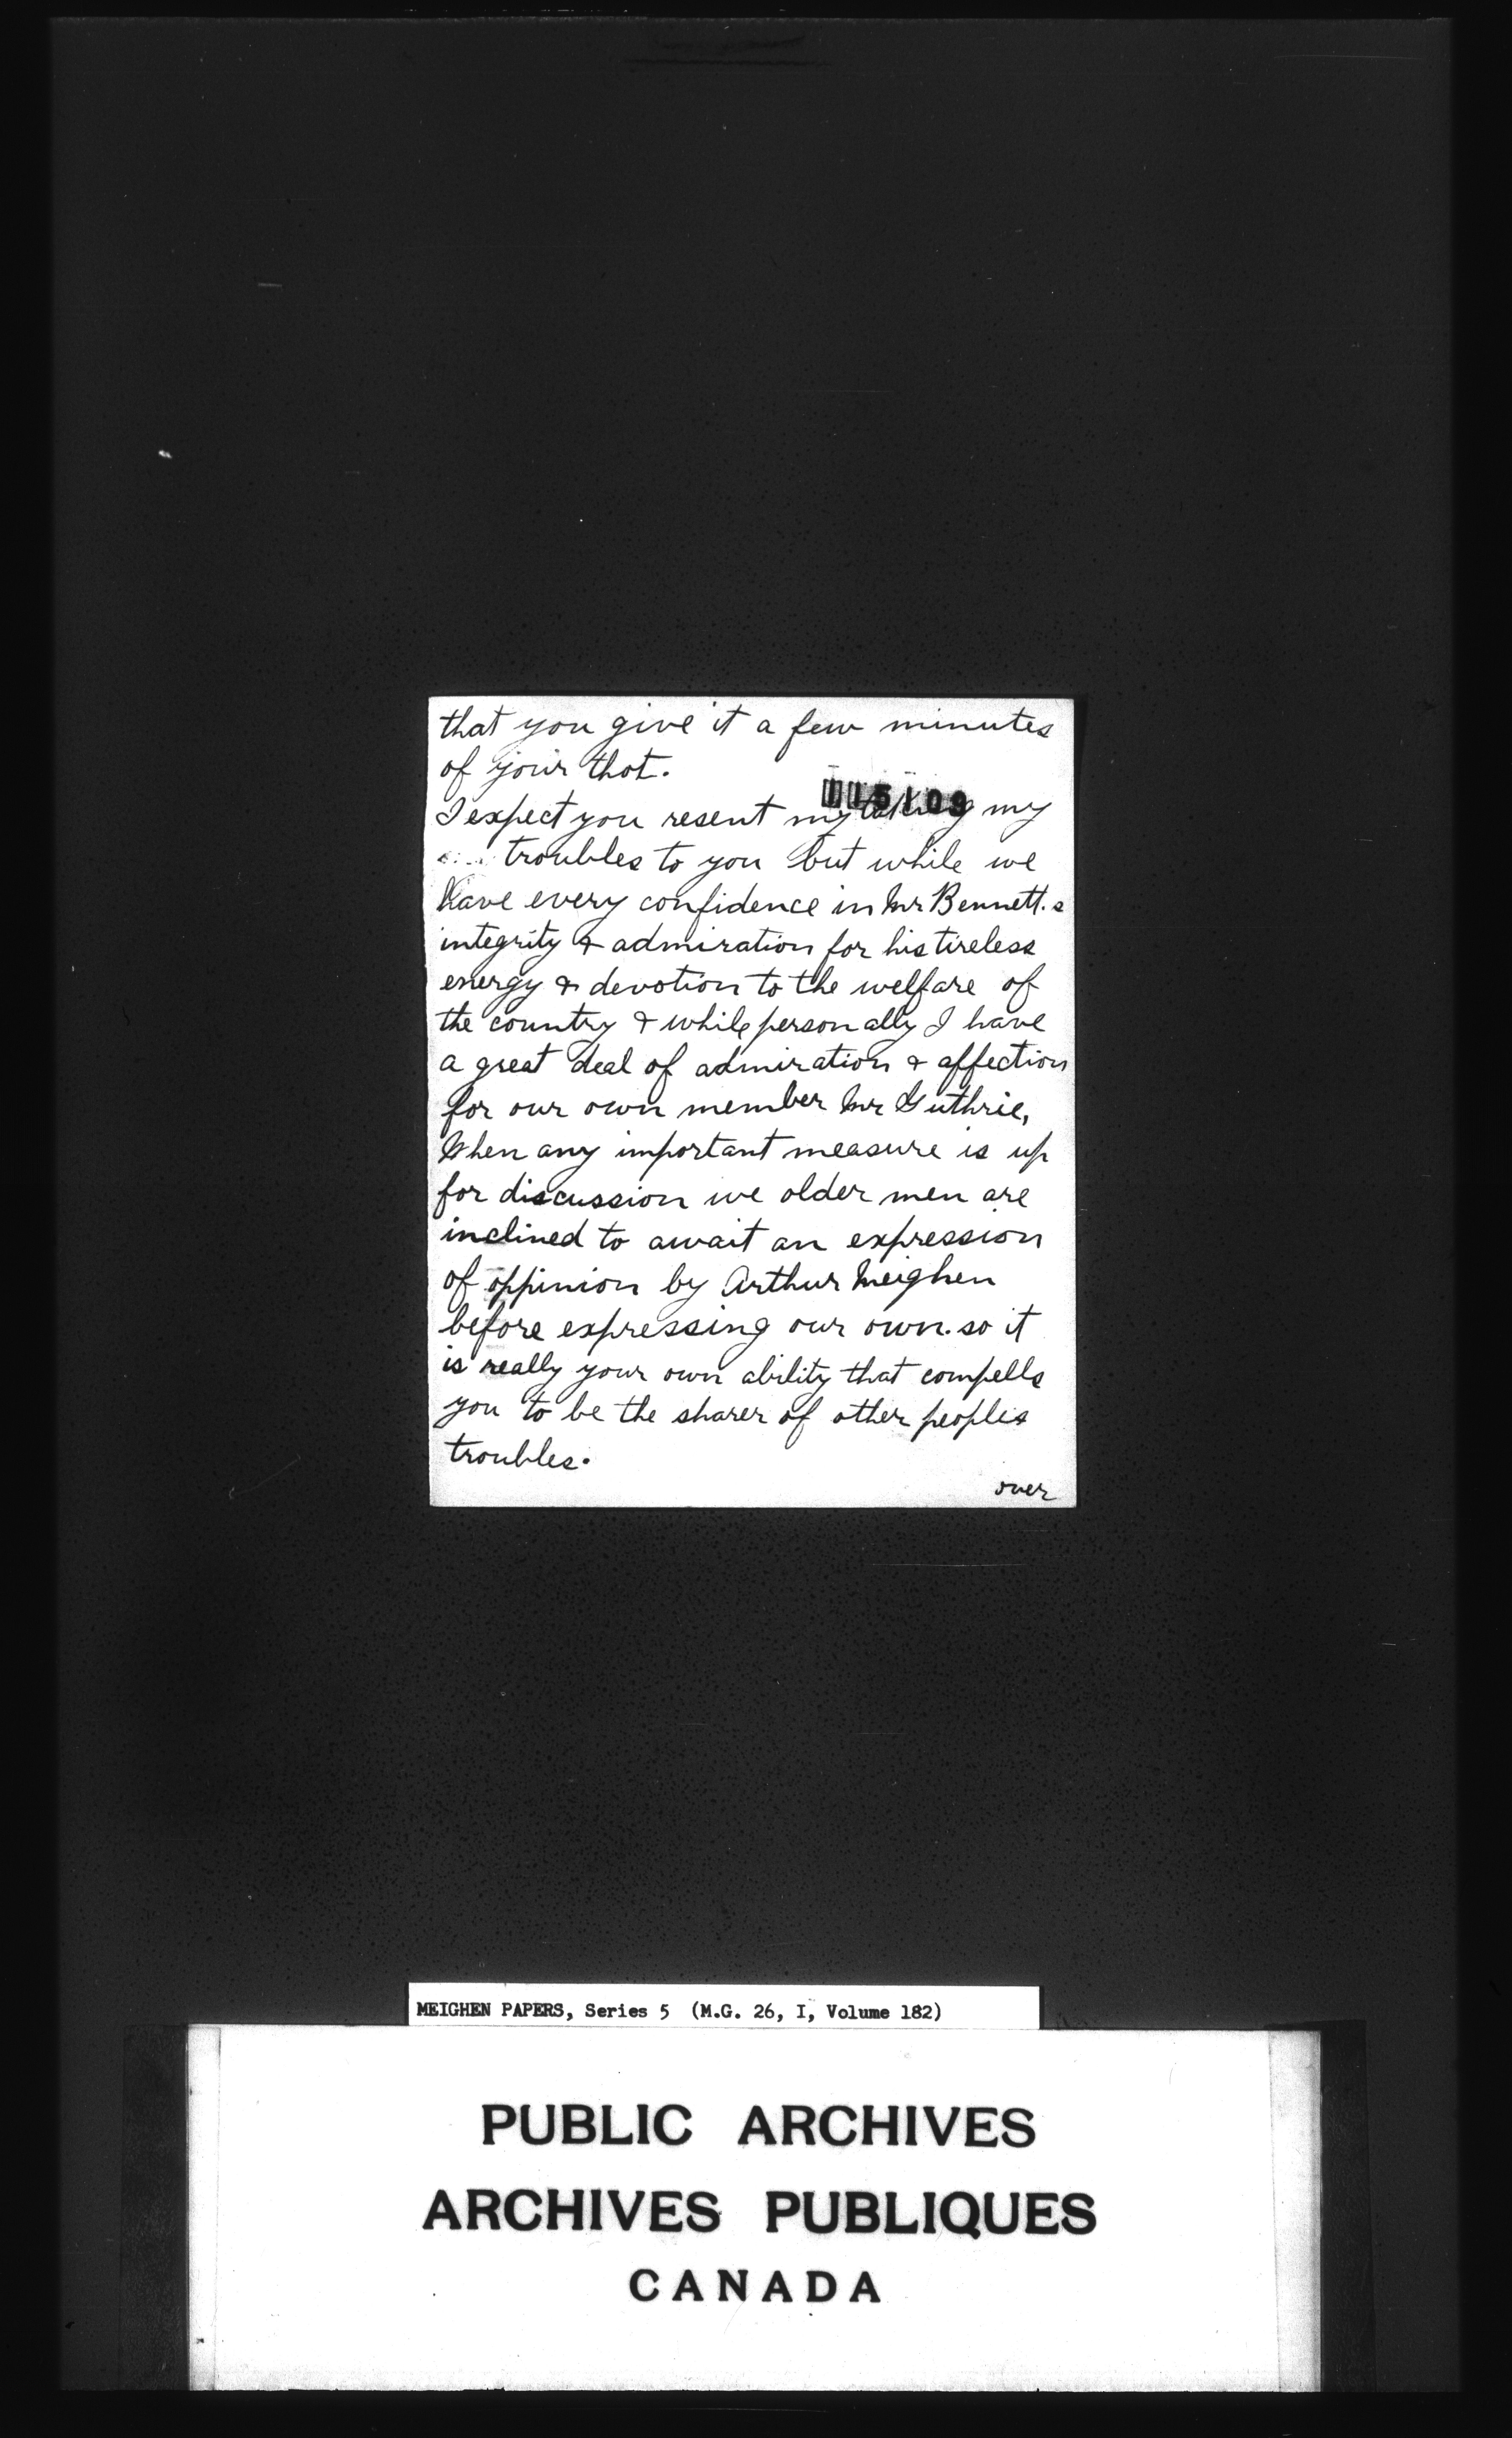 that you give it a few minutes
of your thot.
115109
I expect you resent my taking my
troubles to you but while we
have every confidence in Mr Bennett.s
integrity & admiration for his tireless
energy & devotion to the welfare of
the country & while personally I have
a great deal of admiration & affection
for our own member Mr Guthrie,
When any important measure is up
for discussion we older men are
inclined to await an expression
of oppinion by Arthur Meighen
before expressing our own. so it
is really your own ability that compells
you to be the sharer of other peoples
troubles.
over
MEIGHEN PAPERS, Series 5 (M.G. 26, I, Volume 182)
PUBLIC ARCHIVES
ARCHIVES PUBLIQUES
CANADA